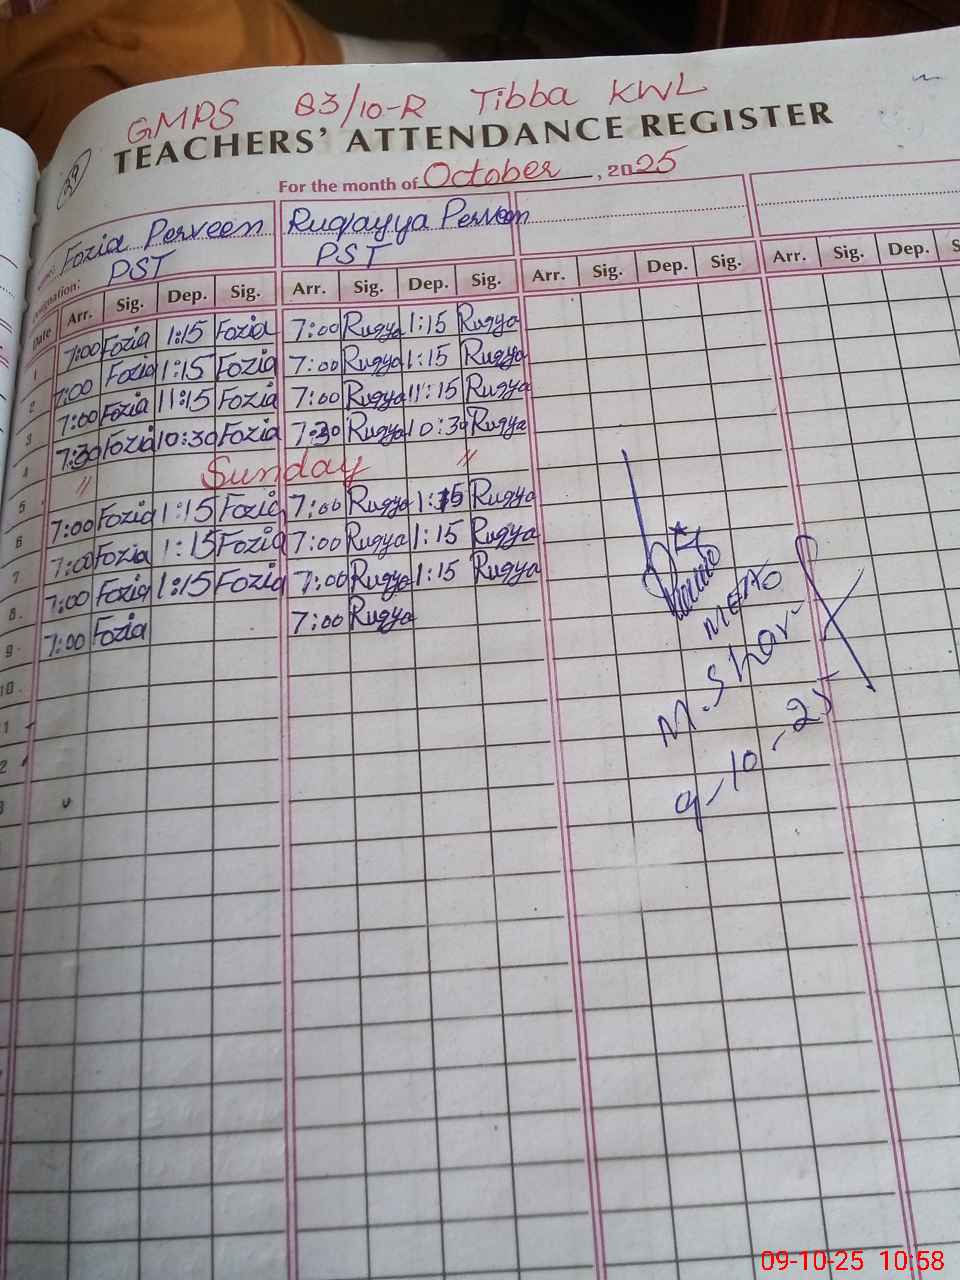 GMPS 83/10-R Tibba KWL
TEACHERS' ATTENDANCE REGISTER
39
For the month of October, 2025
Name: Fozia Perveen Ruqayya Perveen
Designation: PST PST
Date Arr. Sig. Dep. Sig. Arr. Sig. Dep. Sig. Arr. Sig. Dep. Sig. Arr. Sig. Dep. S
1 7:00 Fozia 1:15 Fozia 7:00 Ruqya 1:15 Ruqya
2 7:00 Fozia 1:15 Fozia 7:00 Ruqya 1:15 Ruqya
3 7:00 Fozia 11:15 Fozia 7:00 Ruqya 11:15 Ruqya
4 7:30 Fozia 10:30 Fozia 7:30 Ruqya 10:30 Ruqya
5 " Sunday "
6 7:00 Fozia 1:15 Fozia 7:00 Ruqya 1:15 Ruqya
7 7:00 Fozia 1:15 Fozia 7:00 Ruqya 1:15 Ruqya
8. 7:00 Fozia 1:15 Fozia 7:00 Ruqya 1:15 Ruqya
9. 7:00 Fozia 7:00 Ruqya
10.
1
2
3
MEAO
M. Shar
9-10-25
09-10-25 10:58